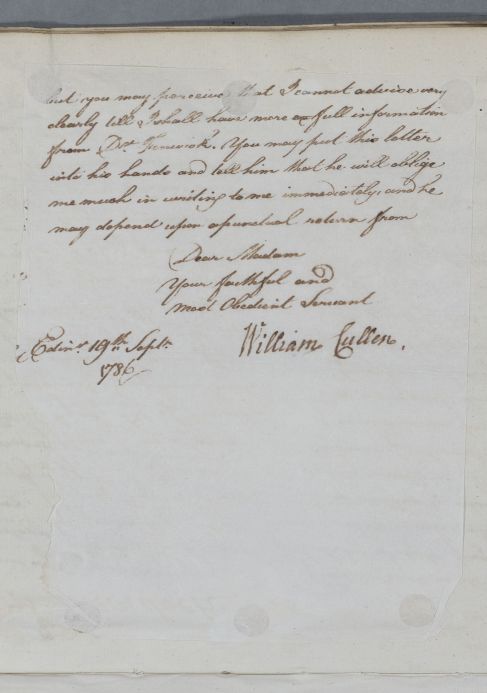 but you may perceive that I cannot advise very
clearly till I shall have more full information
from Dr. Fenwick. You may put this letter
into his hands and tell him that he will oblige
me much in writing to me immediately, and he
may depend upon a punctual return from
Dear Madam
Your faithful and
most Obedient Servant
Edinr. 19th. Septr.
William Cullen.
1786